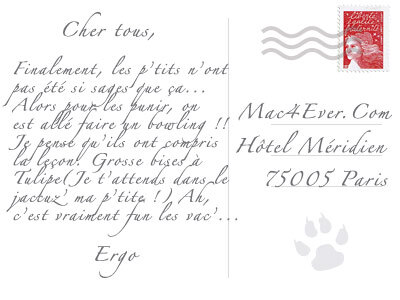 Cher tous,
Finalement, les p'tits n'ont
pas été si sages que ça...
Alors pour les punir, on
est allé faire un bowling !!
Je pense qu'ils ont compris
la leçon. Grosse bises à
Tulipe(Je t'attends dans le
jactuz' ma p'tite !) Ah,
c'est vraiment fun les vac'...
Ergo
liberté
égalité
fraternité
Mac4Ever.Com
Hôtel Méridien
75005 Paris